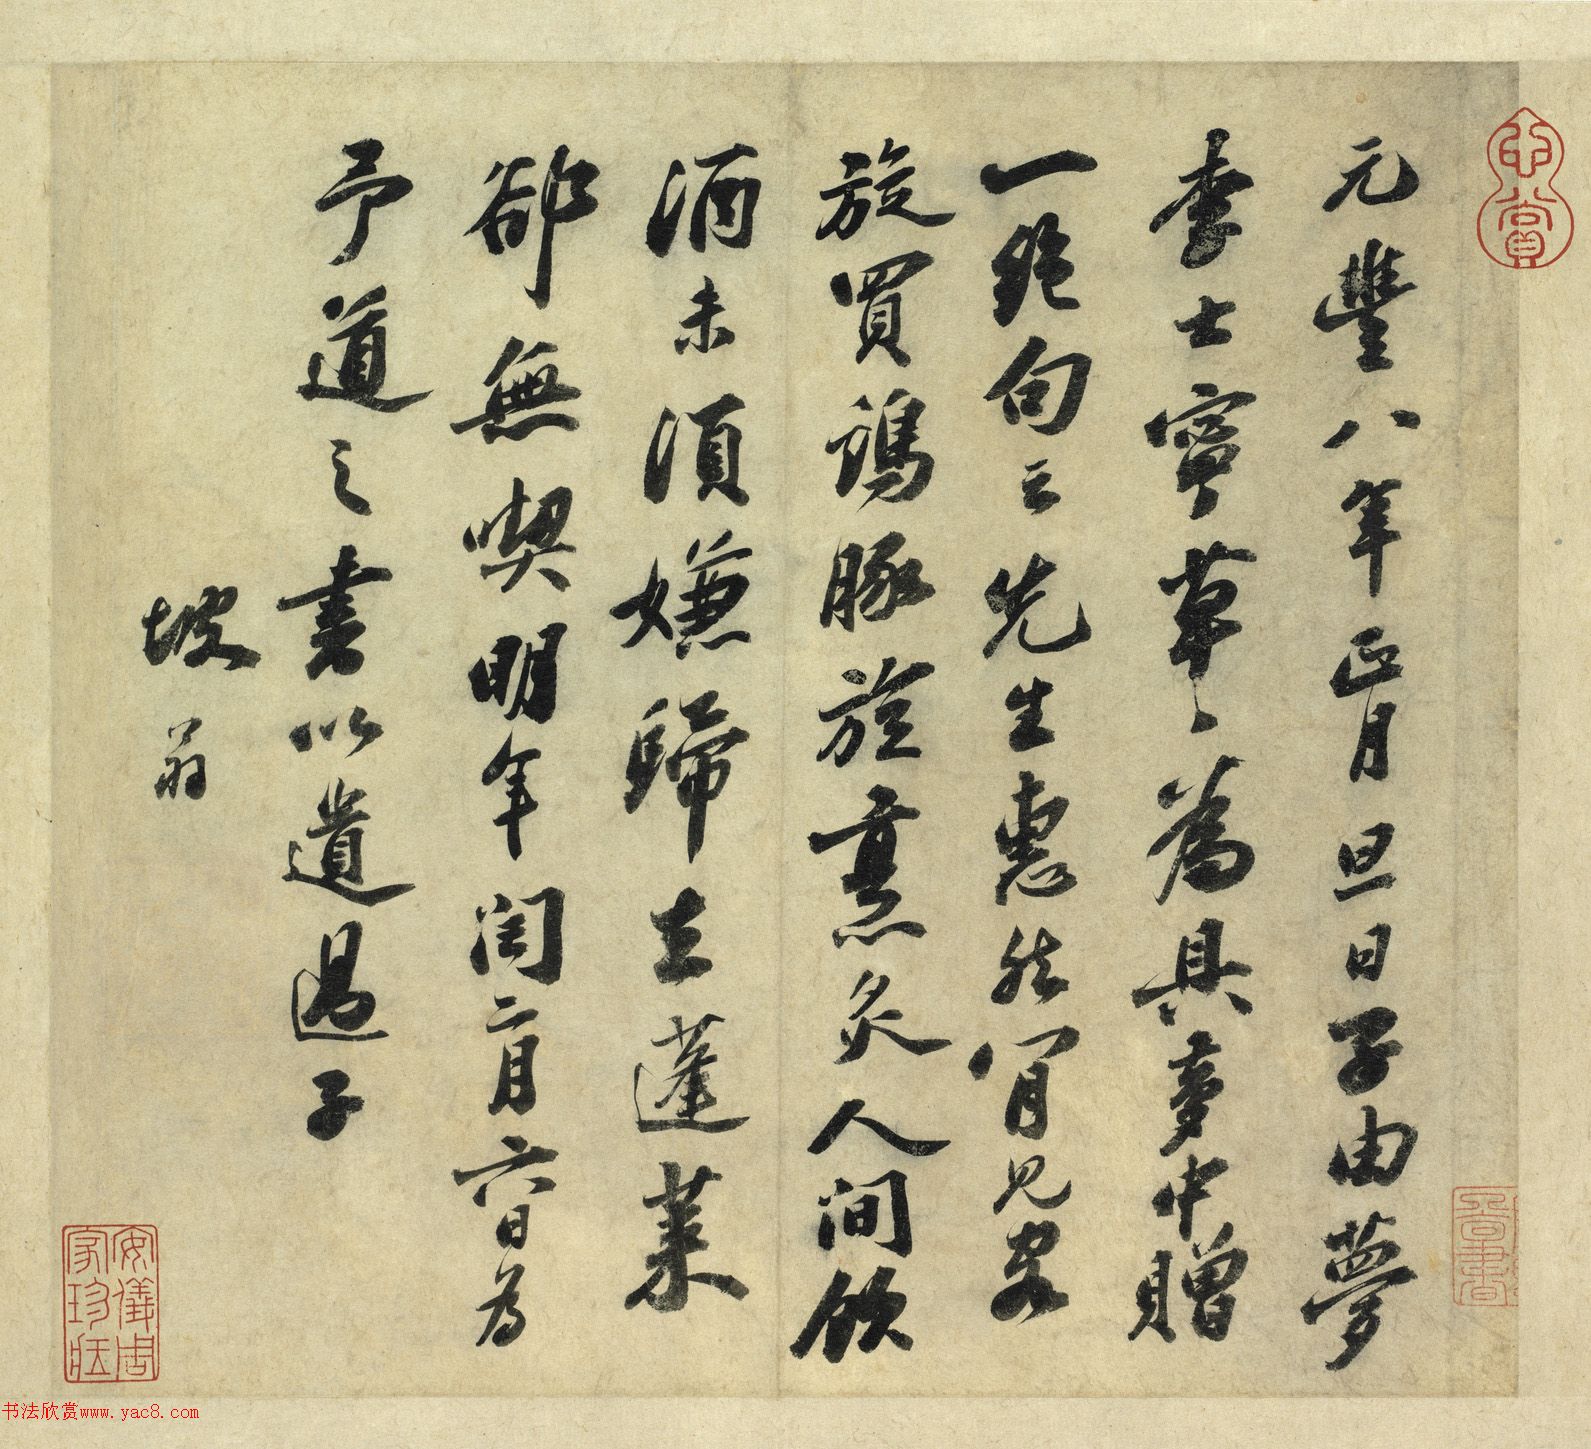 元豐八年正月旦日子由夢
李士寧草草為具夢中贈
一絕句云先生惠然肯見客
旋買鷄豚旋烹炙人間飲
酒未須嫌歸去蓬萊
卻無喫明年閏二月六日為
予道之書以遺過子
坡翁
安儀周家珍藏
书法欣赏www.yac8.com